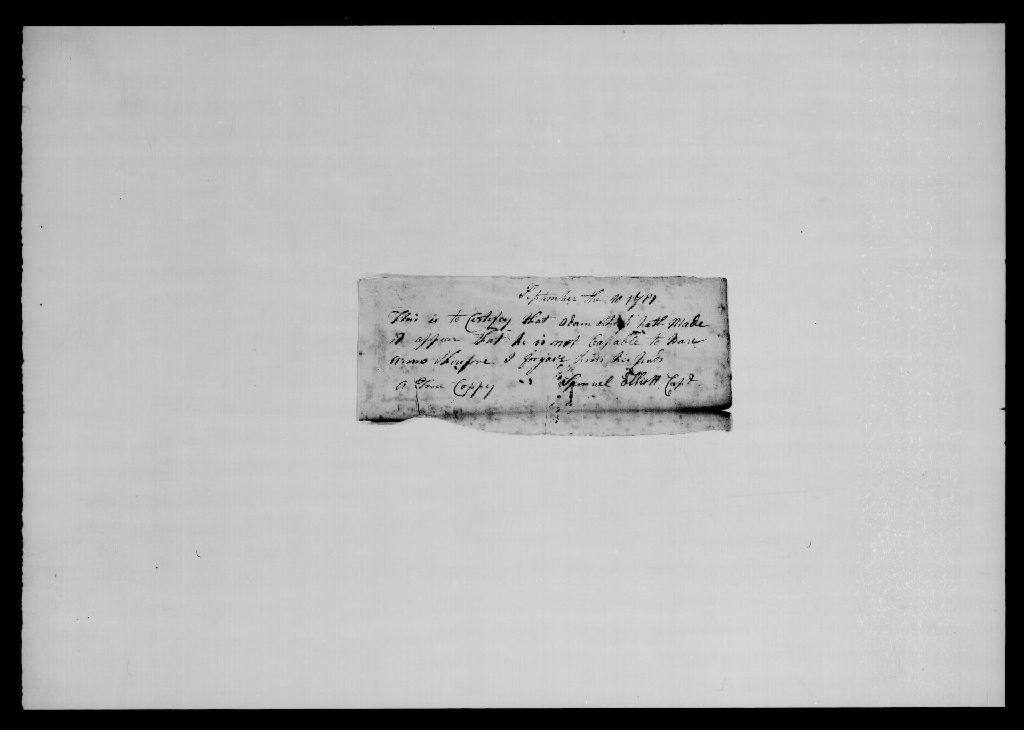 September the 10
This is to Certifey that adam hath Made
it appear that he is not Capable to Bare
arms therefore I forgave him his
A True Coppey Samuel Elliott Capt